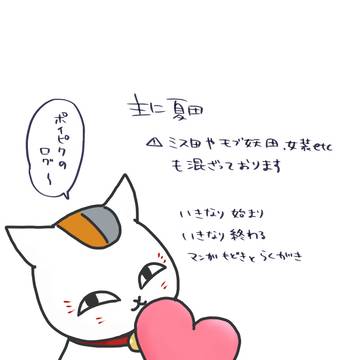 主に夏田
⚠ミス田やモブ妖田、女装etc
も混ざっております
ポイピクの
ログ〜
いきなり始まり
いきなり終わる
マンガもどきとらくがき